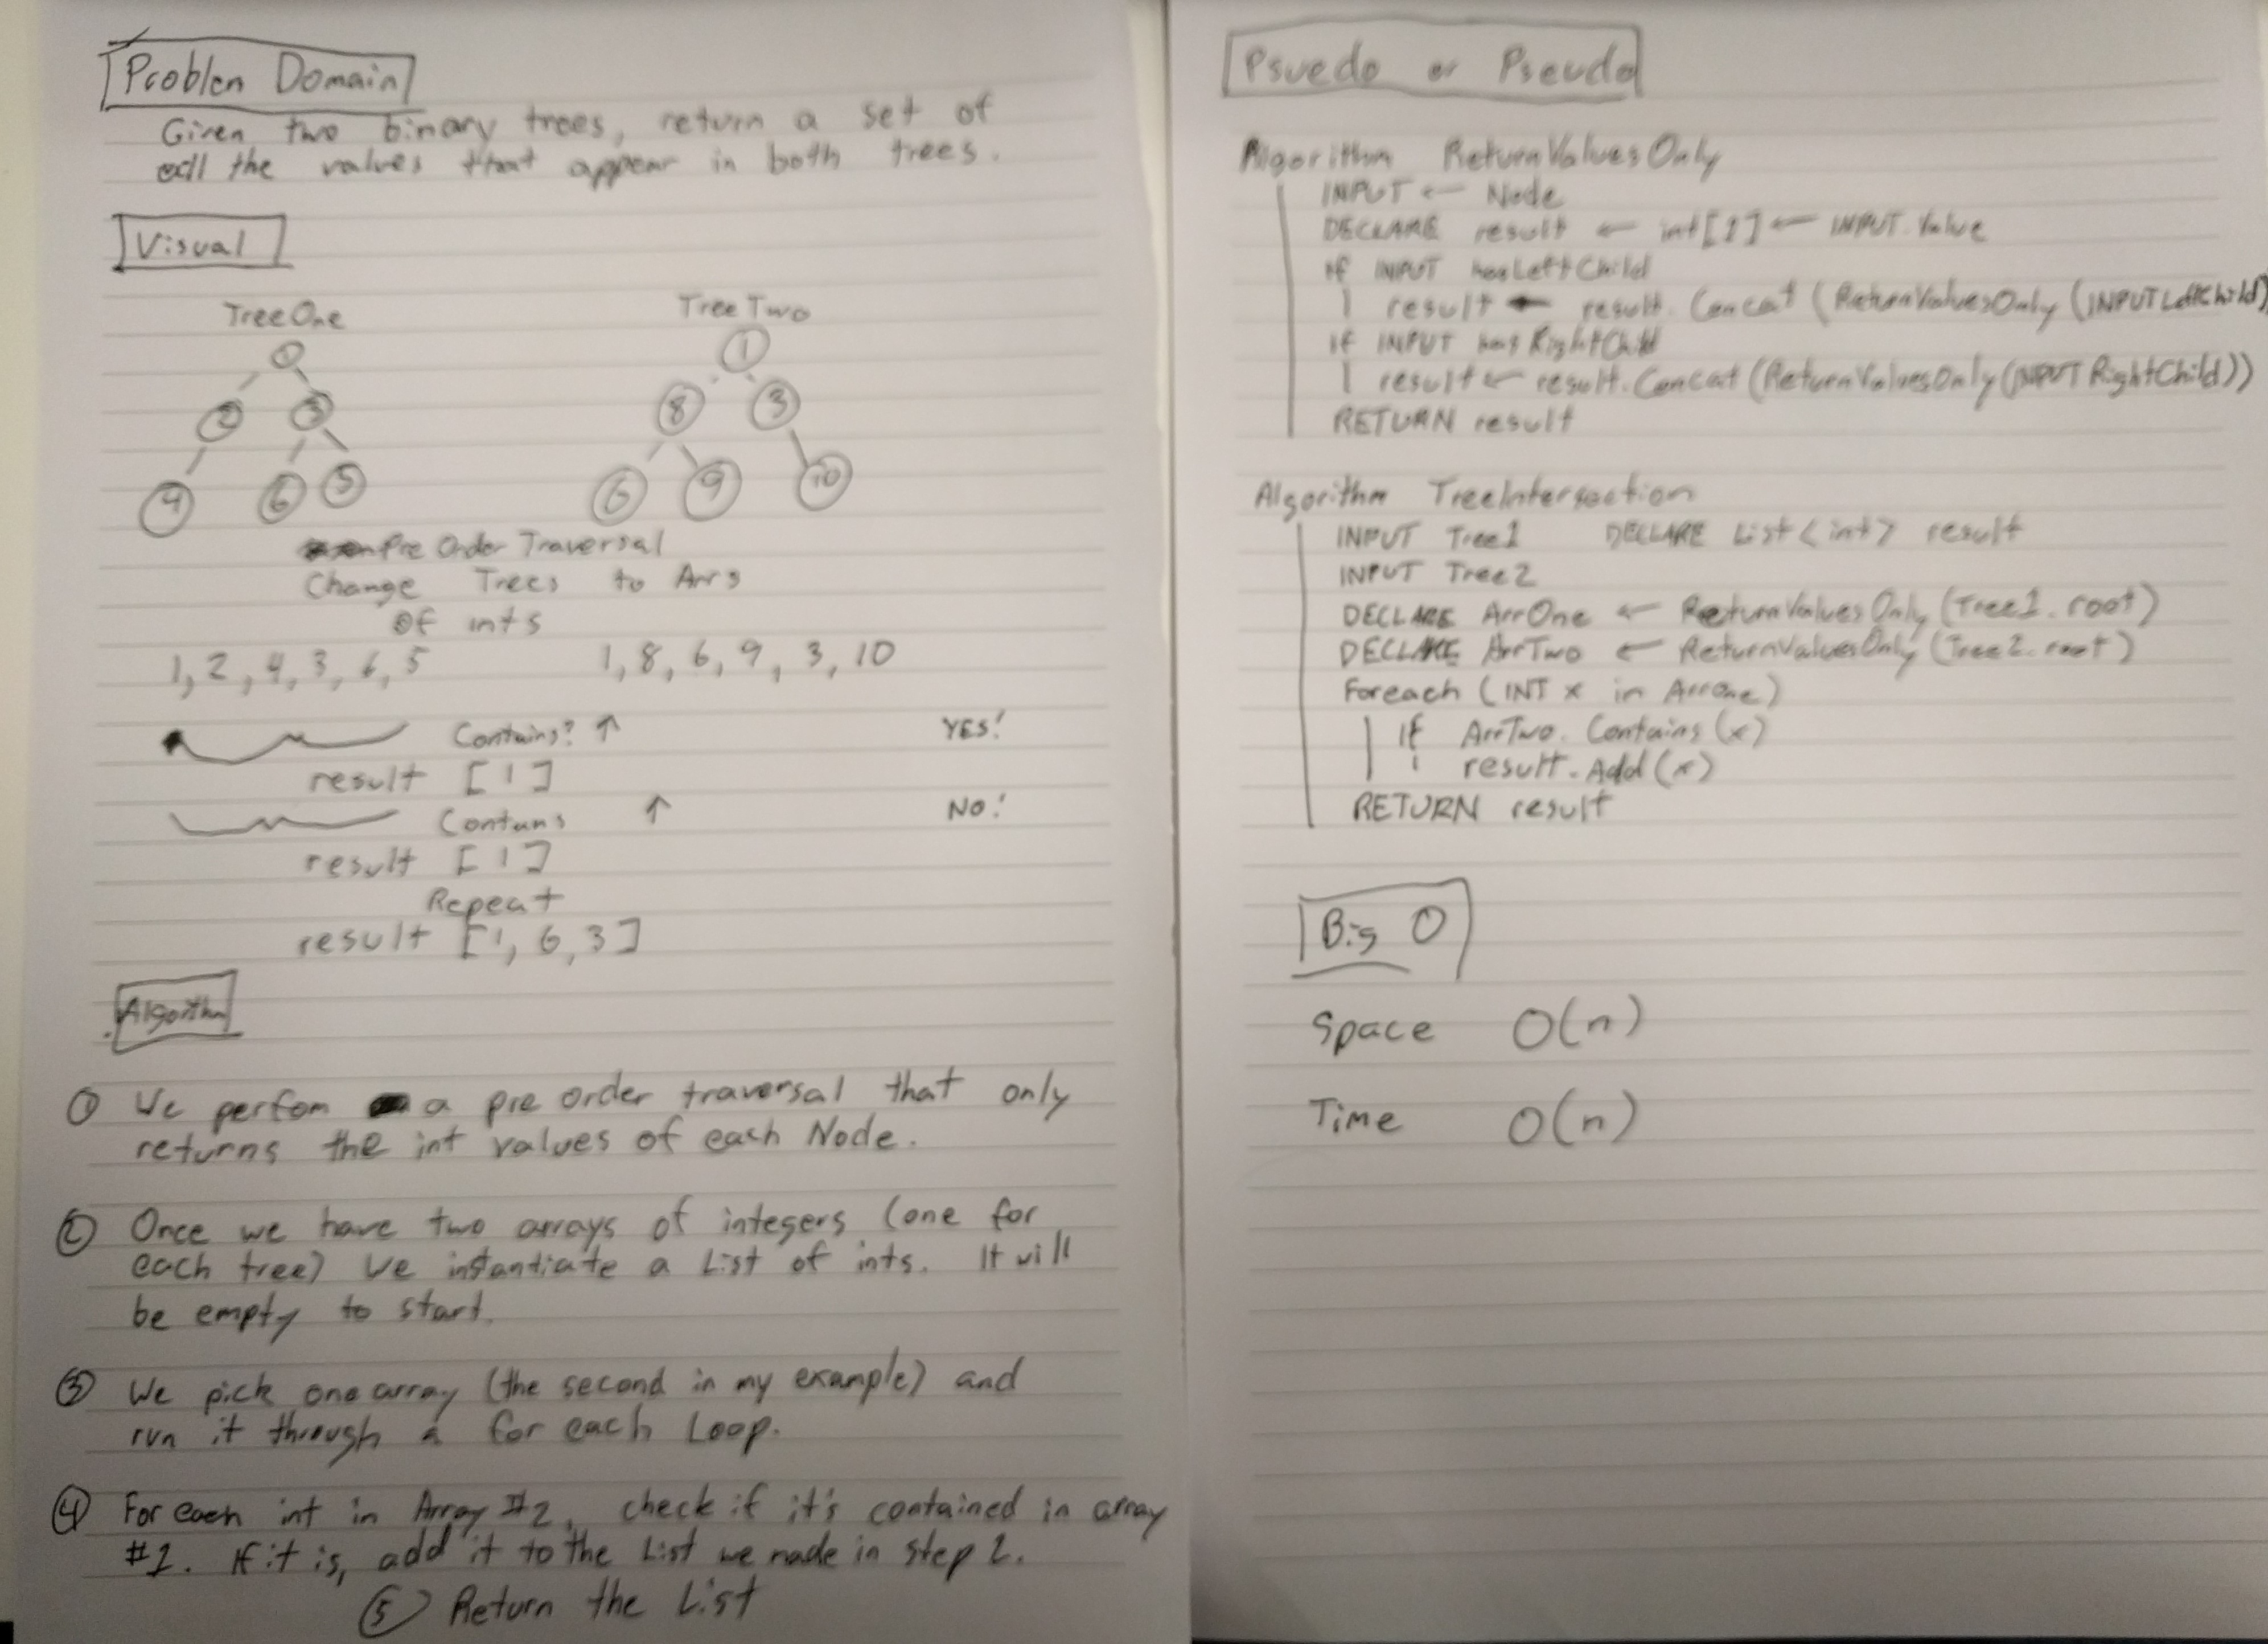 Problem Domain
Given two binary trees, return a set of
all the values that appear in both trees.
Visual
Tree One
Tree Two
1
1
2 3
8 3
4 6 5
6 9 10
Pre Order Traversal
Change Trees to Arrs
of ints
1, 2, 4, 3, 6, 5
1, 8, 6, 9, 3, 10
Contains? ↑ YES!
result [1]
Contans ↑ NO!
result [1]
Repeat
result [1, 6, 3]
Algorithm
① We perfom a pre order traversal that only
returns the int values of each Node.
② Once we have two arrays of integers (one for
each tree) we instantiate a List of ints. It will
be empty to start.
③ We pick one array (the second in my example) and
run it through a for each Loop.
④ For each int in Array #2, check if it's contained in array
#1. If it is, add it to the List we made in step 2.
⑤ Return the List
Psuedo or Pseudo
Algorithm ReturnValuesOnly
INPUT ← Node
DECLARE result ← int[1] ← INPUT.Value
if INPUT hasLeftChild
result ← result.Concat(ReturnValuesOnly(INPUTLeftChild))
if INPUT has RightChild
result ← result.Concat(ReturnValuesOnly(INPUTRightChild))
RETURN result
Algorithm TreeIntersection
INPUT Tree1 DECLARE List<int> result
INPUT Tree2
DECLARE ArrOne ← ReturnValuesOnly(Tree1.root)
DECLARE ArrTwo ← ReturnValuesOnly(Tree2.root)
Foreach (INT x in ArrOne)
If ArrTwo.Contains(x)
result.Add(x)
RETURN result
Big O
Space O(n)
Time O(n)